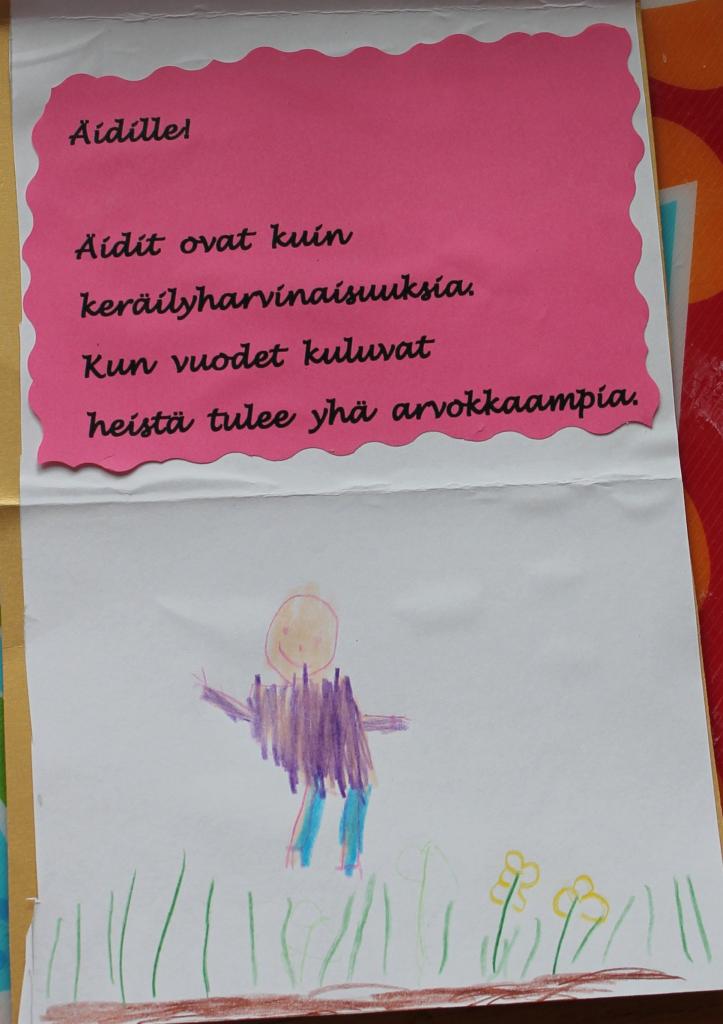 Äidille!
Äidit ovat kuin
keräilyharvinaisuuksia.
Kun vuodet kuluvat
heistä tulee yhä arvokkaampia.